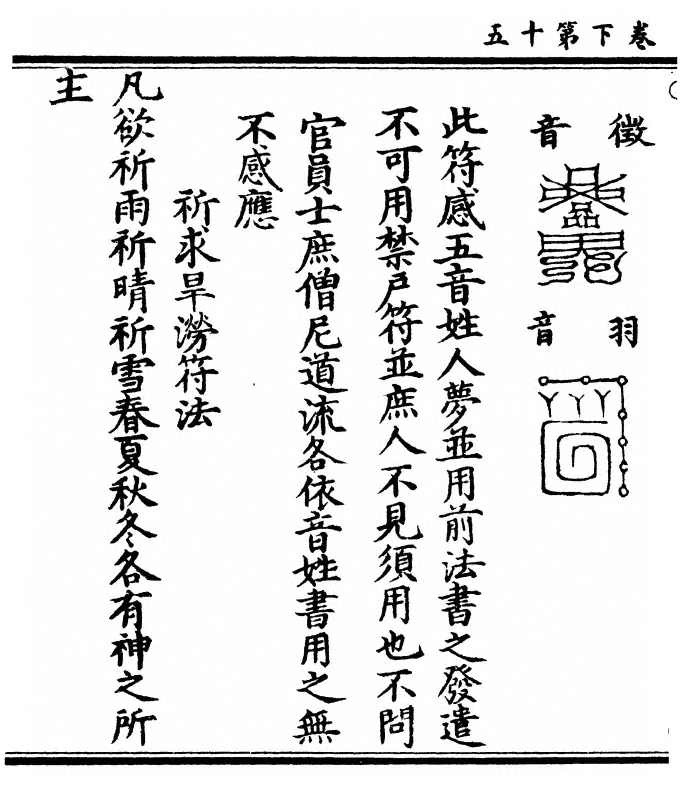 卷下第十五
徵音
羽音
此符感五音姓人夢並用前法書之發遣
不可用禁戶符並庶人不見須用也不問
官員士庶僧尼道流各依音姓書用之無
不感應
祈求旱澇符法
凡欲祈雨祈晴祈雪春夏秋冬各有神之所
主